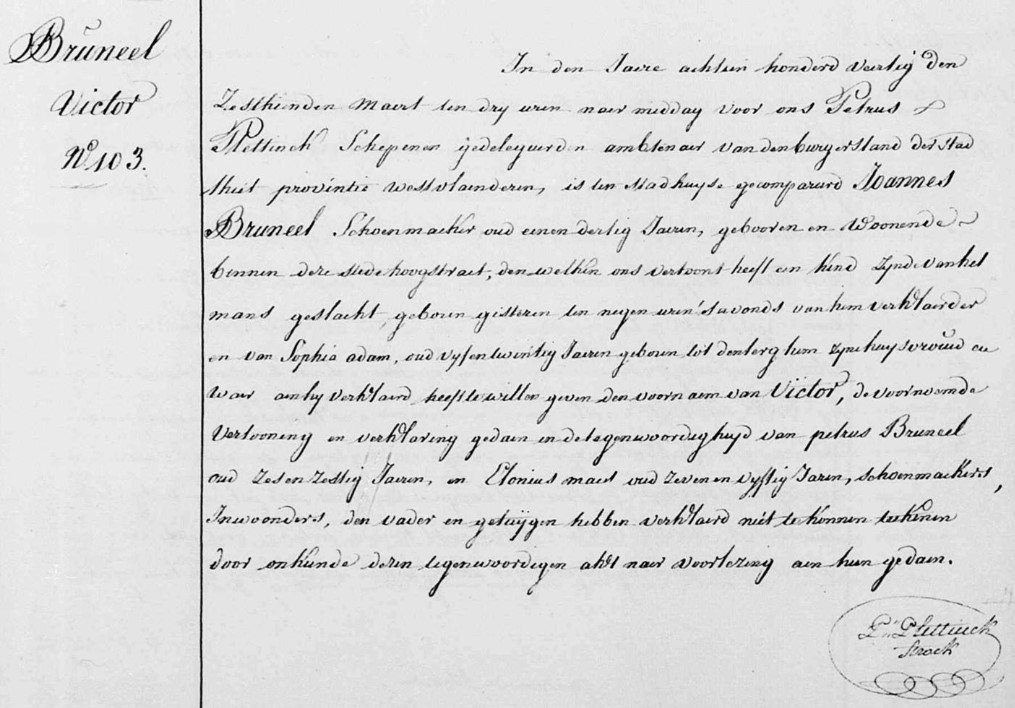 Bruneel
Victor
N° 103.
In den Jaere achtien honderd veertig den
Zesthienden Maert ten dry uren naer middag voor ons Petrus
Plettinck Schepenen gedelegueerden ambtenaer van den burgerstand der Stad
thielt provintie westvlaenderen, is ten stadhuyse gecompareerd Joannes
Bruneel Schoenmaeker oud eenen dertig Jaeren, gebooren en Woonende
binnen deze stede hoogstraet, den welken ons vertoont heeft een kind zynde van het
mans geslacht, geboren gisteren ten negen uren 's avonds van hem verklaerder
en van Sophia adam, oud vyf en twintig Jaeren geboren tot denterghem zyne huysvrouw en
waer aen hy verklaerd heeft te willen geven den voornaem van Victor, de voornoemde
Vertooning en verklaring gedaen in de tegenwoordigheyd van petrus Bruneel
oud Zes en Zestig Jaeren, en Elonius maes oud Zeven en vyftig Jaeren, schoenmaekers,
Inwoonders, den vader en getuygen hebben verklaerd niet te konnen teekenen
door onkunde dezen tegenwoordigen akt naer voorlezing aen hun gedaen.
Pr Plettinck